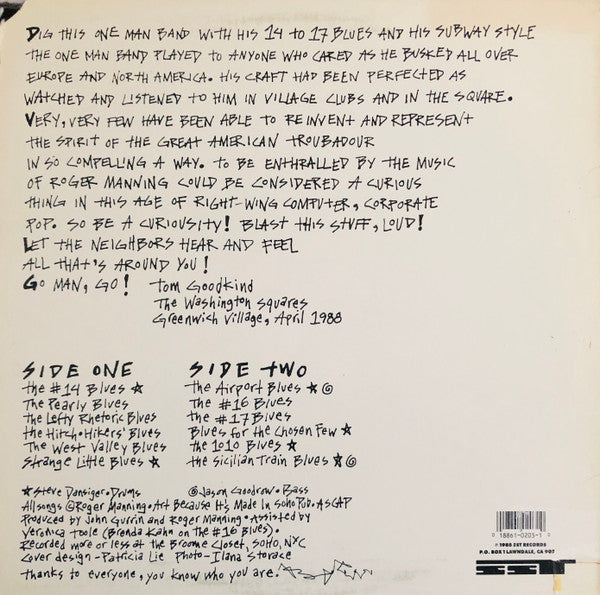 Dig this one man band with his 14 to 17 Blues and his subway style
the one man band played to anyone who cared as he busked all over
Europe and North America. His craft had been perfected as
watched and listened to him in village clubs and in the square.
Very, very few have been able to reinvent and represent
the spirit of the great American troubadour
in so compelling a way. To be enthralled by the music
of Roger Manning could be considered a curious
thing in this age of right-wing computer, corporate
pop. So be a curiousity! Blast this stuff, loud!
Let the neighbors hear and feel
all that's around you!
Go man, go! Tom Goodkind
The Washington Squares
Greenwich Village, April 1988
SIDE ONE
the #14 Blues ☆
The Pearly Blues
the Lefty Rhetoric Blues
the Hitch-Hikers' Blues
The West Valley Blues
Strange Little Blues ☆
SIDE TWO
the Airport Blues ☆ @
The #16 Blues
the #17 Blues
Blues for the Chosen Few ☆
the 1010 Blues ☆
the Sicilian Train Blues ☆ @
☆ Steve Dansiger • Drums @ Jason Goodrow • Bass
All songs @ Roger Manning • Art Because It's Made In Soho Pub. ASCAP
Produced by John Gurrin and Roger Manning • Assisted by
Veronica Toole (Brenda Kahn on the #16 Blues).
Recorded more or less at the Broome Closet, SOHO, NYC
Cover design - Patricia Lie Photo - Ilana Storace
thanks to everyone, you know who you are.
0 18861-0203-1 0
© 1988 SST RECORDS
P.O. BOX 1 LAWNDALE, CA 907
SST